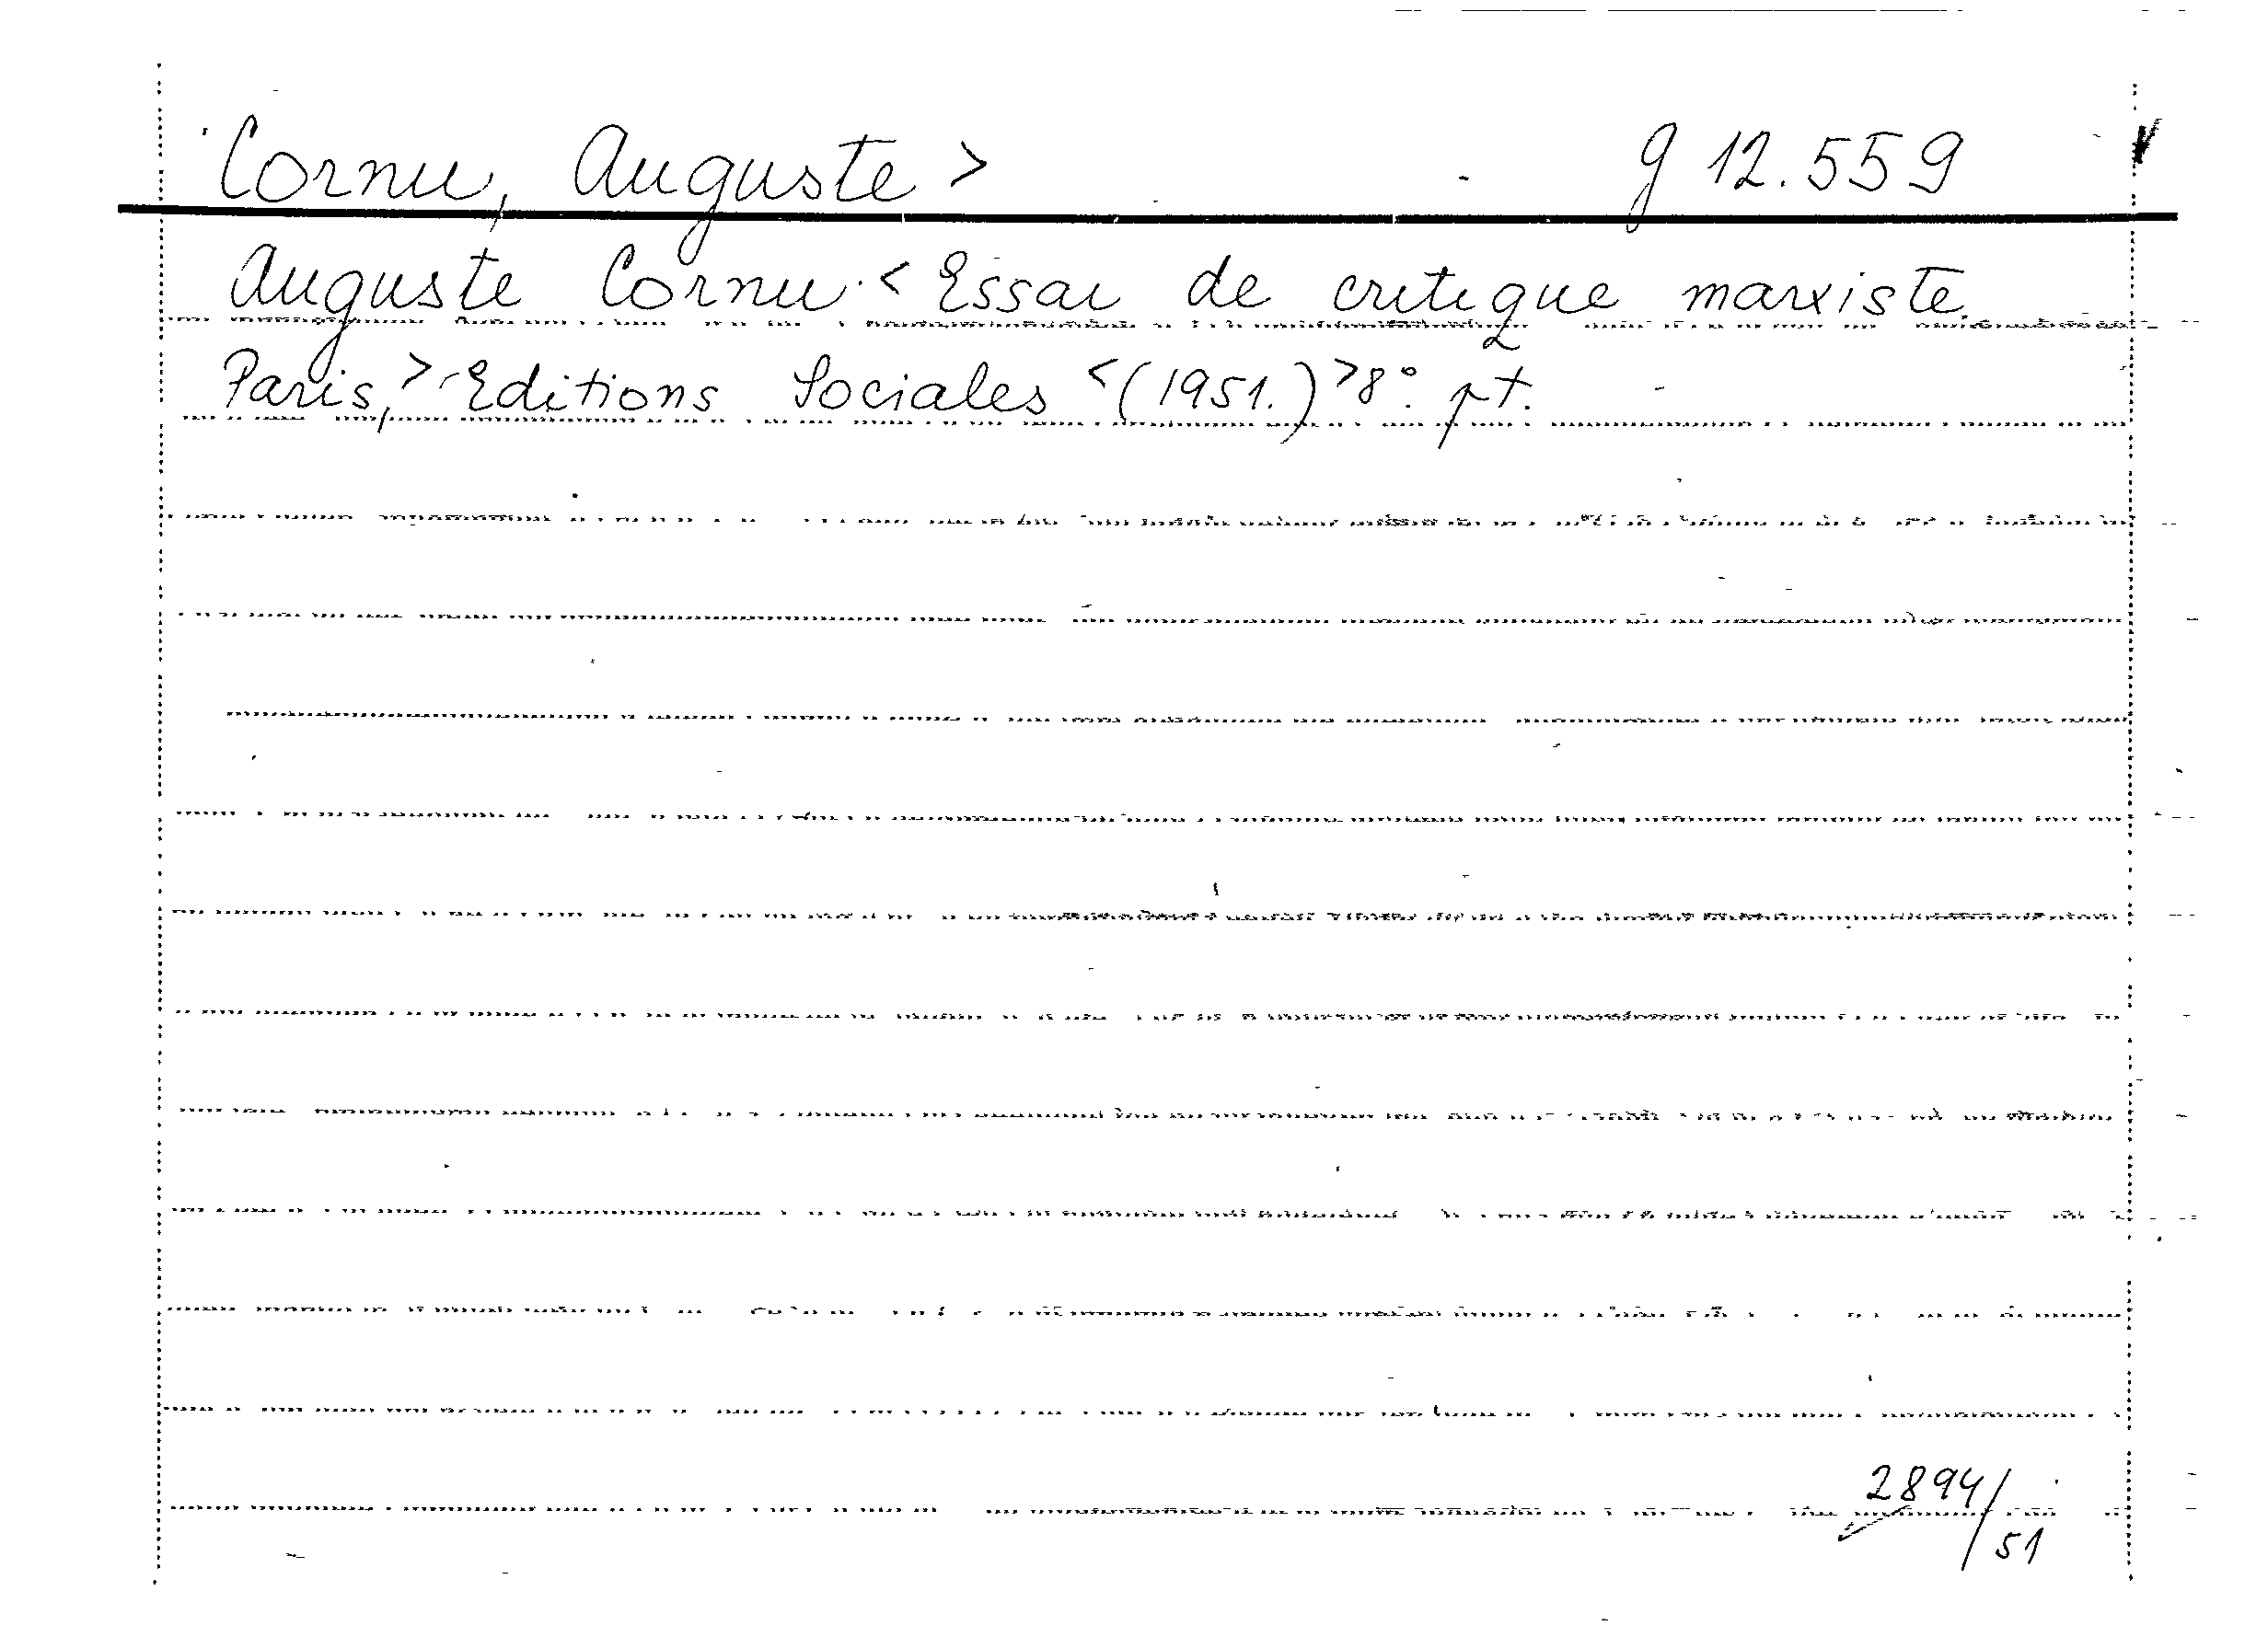 Cornu, Auguste > g 12.559
Auguste Cornu. < Essai de critique marxiste.
Paris, > Editions Sociales < (1951.) > 8°. pt.
2894/
51